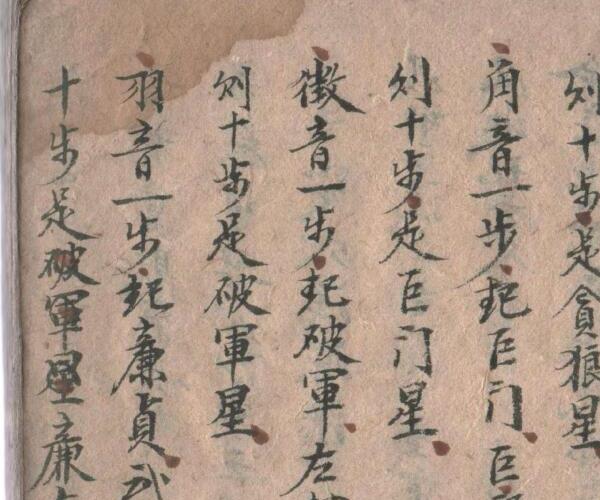 刘十步是貪狼星
角音一步起巨门巨
刘十步是巨门星
徵音一步起破軍左
刘十步是破軍星
羽音一步起廉貞武
十步是破軍星廉